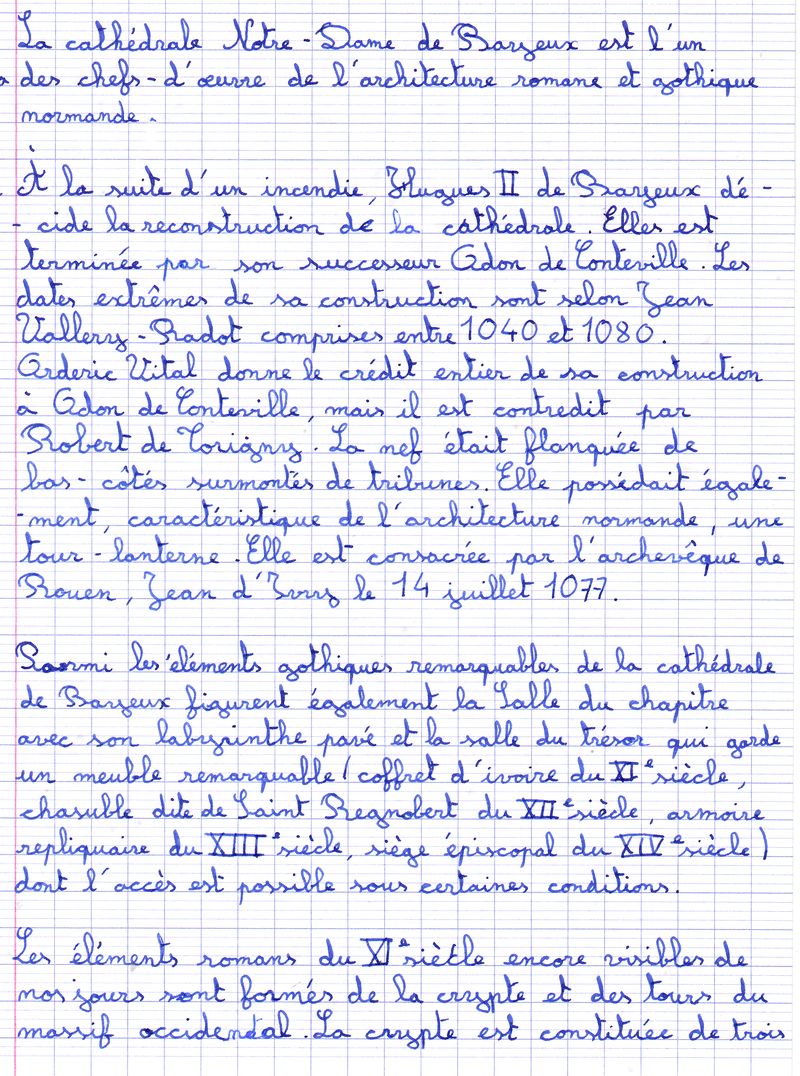 La cathédrale Notre-Dame de Bayeux est l'un
des chefs-d'œuvre de l'architecture romane et gothique
normande.
À la suite d'un incendie, Hugues II de Bayeux dé-
-cide la reconstruction de la cathédrale. Elles est
terminée par son successeur Odon de Conteville. Les
dates extrêmes de sa construction sont selon Jean
Vallery-Radot comprises entre 1040 et 1080.
Orderic Vital donne le crédit entier de sa construction
à Odon de Conteville, mais il est contredit par
Robert de Torigny. La nef était flanquée de
bas-côtés surmontés de tribunes. Elle possédait égale-
-ment, caractéristique de l'architecture normande, une
tour-lanterne. Elle est consacrée par l'archevêque de
Rouen, Jean d'Ivry le 14 juillet 1077.
Parmi les éléments gothiques remarquables de la cathédrale
de Bayeux figurent également la Salle du chapitre
avec son labyrinthe pavé et la salle du trésor qui garde
un meuble remarquable (coffret d'ivoire du XIe siècle,
chasuble dite de Saint Regnobert du XIIe siècle, armoire
repliquaire du XIIIe siècle, siège épiscopal du XIVe siècle)
dont l'accès est possible sous certaines conditions.
Les éléments romans du XIe siècle encore visibles de
nos jours sont formés de la crypte et des tours du
massif occidental. La crypte est constituée de trois